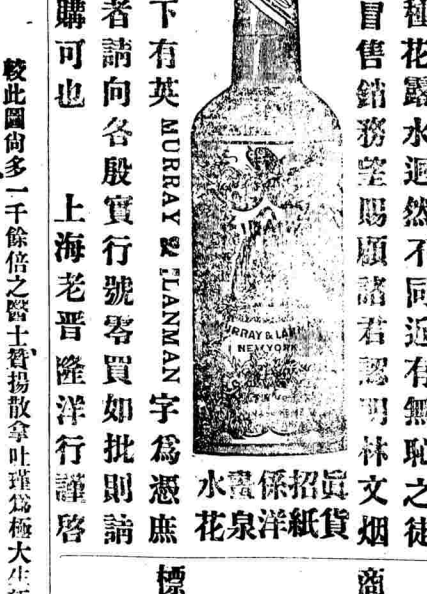 種花露水迥然不同近有無恥之徒
冒售銷務望賜顧諸君認明林文烟
MURRAY & LANMAN
NEW YORK
眞貨
招紙
係洋
靈泉
水花
下有英MURRAY & LANMAN字爲憑庶
者請向各殷實行號零買如批則請
購可也 上海老晋隆洋行謹啓
商
標
較此圖尙多一千餘倍之醫士贊揚散拿吐瑾爲極大生